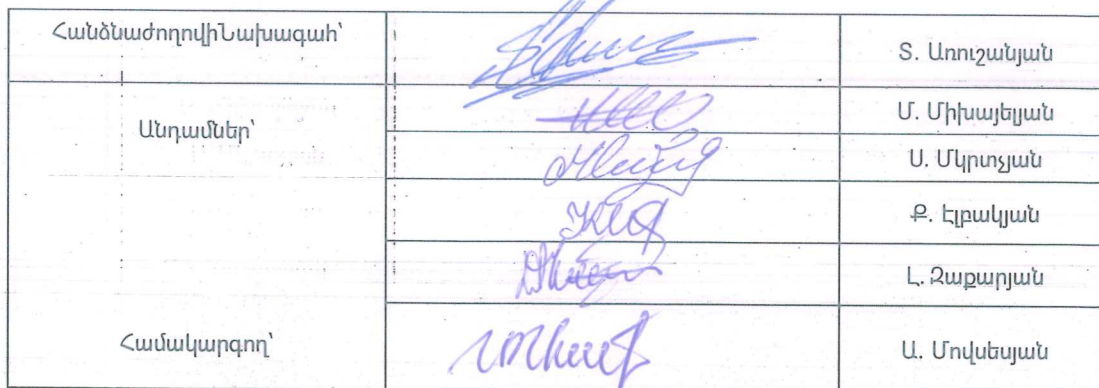 ՀանձնաժողովիՆախագահ՝
Տ. Առուշանյան
Անդամներ՝
Մ. Միխայելյան
Ս. Մկրտչյան
Ք. Էլբակյան
Լ. Զաքարյան
Համակարգող՝
Ա. Մովսեսյան